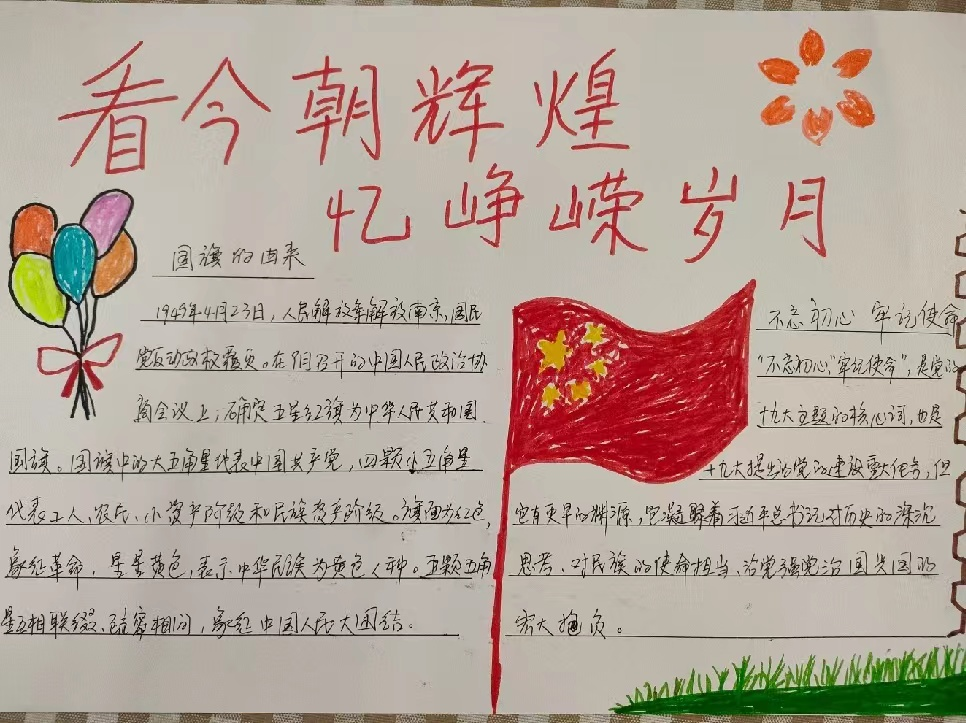 看今朝辉煌
忆峥嵘岁月
国旗的由来
1949年4月23日，人民解放军解放南京，国民
党反动政权覆灭。在9月召开的中国人民政治协
商会议上，确定五星红旗为中华人民共和国
国旗。国旗中的大五角星代表中国共产党，四颗小五角星
代表工人、农民、小资产阶级和民族资产阶级。旗面为红色，
象征革命，星呈黄色，表示中华民族为黄色人种。五颗五角
星互相联缀、疏密相间，象征中国人民大团结。
不忘初心 牢记使命
“不忘初心，牢记使命”，是党的
十九大主题的核心词，也是
十九大提出的党的建设重大任务，但
它有更早的渊源，它凝聚着习近平总书记对历史的深沉
思考、对民族的使命担当、治党强党治国兴国的
宏大抱负。